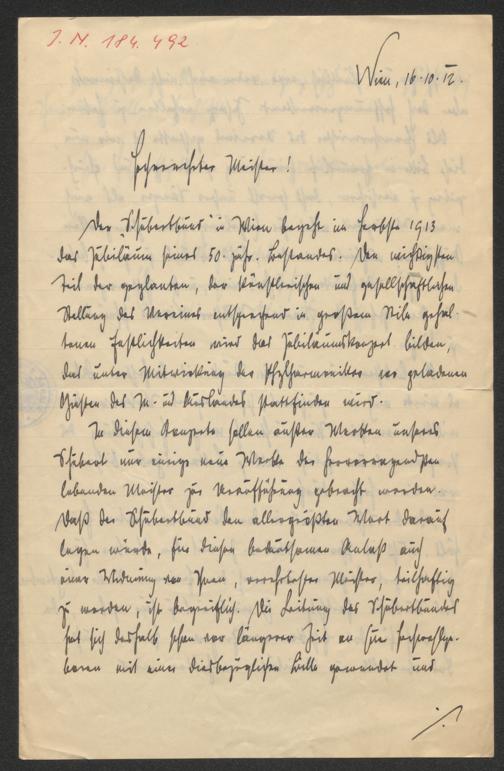 I. N. 184.492
Wien, 16.10.12.
Hochverehrter Meister!
Der "Schubertbund" in Wien begeht im Herbste 1913
das Jubiläum seines 50-jähr. Bestandes. Den wichtigsten
Teil der geplanten, der künstlerischen und gesellschaftlichen
Stellung des Vereines entsprechend in großem Stile gehal-
tenen Festlichkeiten wird das Jubiläumskonzert bilden,
das unter Mitwirkung der Philharmoniker vor geladenen
Gästen des In- und Auslandes stattfinden wird.
In diesem Konzerte sollen außer Werken unseres
Schubert nur einige neue Werke der hervorragendsten
lebenden Meister zur Uraufführung gebracht werden.
Daß der Schubertbund den allergrößten Wert darauf
legen würde, für diesen bedeutsamen Anlaß auch
einer Widmung von Ihnen, verehrtester Meister, teilhaftig
zu werden, ist begreiflich. Die Leitung des Schubertbundes
hat sich deshalb schon vor längerer Zeit an Euer Hochwohlge-
boren mit einer diesbezüglichen Bitte gewendet und
./.